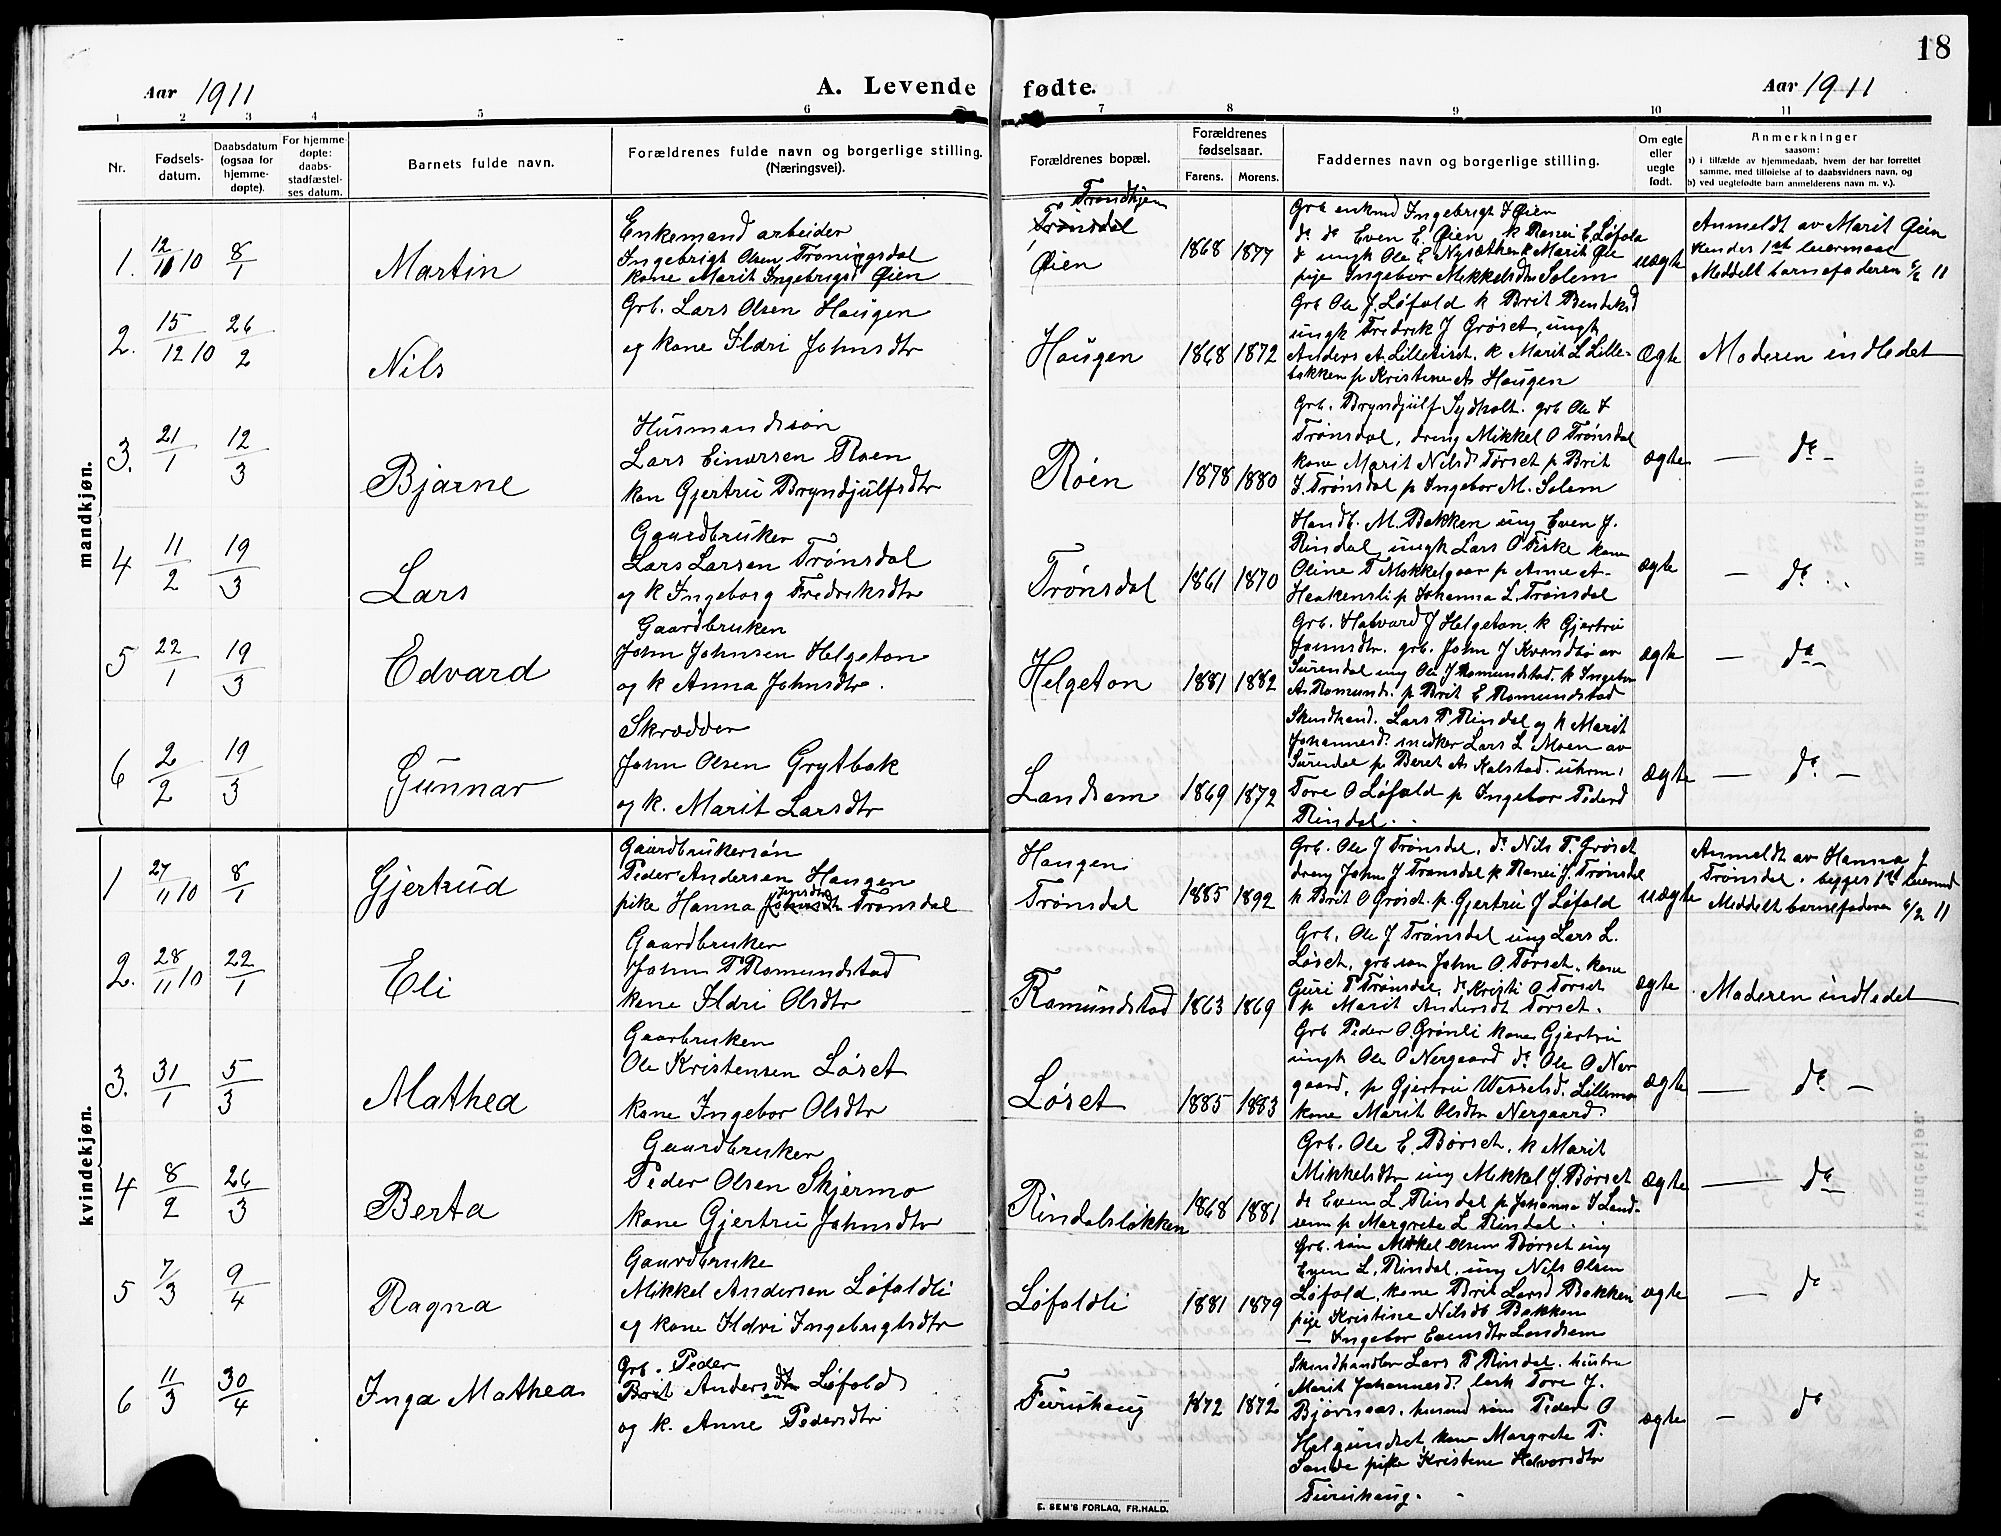 18
Aar 1911
A. Levende fødte.
Aar 1911
1 2 3 4 5 6 7 8 9 10 11
Nr.
Fødsels-
datum.
Daabsdatum
(ogsaa for
hjemme-
døpte).
For hjemme-
døpte:
daabs-
stadfæstel-
ses datum.
Barnets fulde navn.
Forældrenes fulde navn og borgerlige stilling.
(Næringsvei).
Forældrenes bopæl.
Forældrenes
fødselsaar.
Farens. Morens.
Faddernes navn og borgerlige stilling.
Om egte
eller
uegte
født.
Anmerkninger
saasom:
a) i tilfælde av hjemmedaab, hvem der har forrettet
samme, med tilføielse af to daabsvidners navn, og
b) ved uegtefødte barn anmelderens navn m. v.).
mandkjøn.
1. 12/11 10 8/1 Martin
Enkemand arbeider
Ingebrigt Olsen Tröningsdal
kone Marit Ingebrigt Øien
Trondhjem
Trönsdal
Øien
1868 1877
Grb enkmd Ingebrigt J Øien
do do Even E. Øien k Ranei E. Løfald
pige Ingebor Mikkelsdtr Solem
uægte
Anmeldt av Marit Øien
hendes 1st leiermaal
Meddelt barnefaderen 6/2 11
2. 15/12 10 26/2 Nils
Grb. Lars Olsen Haugen
og kone Ildri Johnsdtr
Haugen
1868 1872
Grb Ole J. Løfald k Brit Bendiksd
ungk Fredrik J Grøset, ungk
Anders A. Lillekist. k Marit L Lille-
bakken p Kristine As Haugen
Ægte
Moderen indledet
3. 21/1 12/3 Bjarne
Husmandssøn
Lars Einersen Roen
kon Gjertru Bryndjulfsdtr
Röen
1878 1880
Grb. Bryndjulf Sydhalt. grb Ole J
Trønsdal, dreng Mikkel O Trønsdal
kone Marit Nilsd Tørset p Brit
J. Trønsdal p Ingebor M. Solem
ægte
— do —
4 11/2 19/3 Lars
Gaardbruker
Lars Larsen Trønsdal
og k Ingeborg Fredriksdtr
Trønsdal
1861 1870
Handb. M. Bakken ung Even J.
Rindal, ungk Lars O Fiske kone
Oline T Mokkelgaar p Anne A-
Haakensli p Johanna L. Trønsdal
ægte
— do
5 22/1 19/3 Edvard
Gaardbruken
John Johnsen Helgeton
og k Anna Johnsdtr.
Helgeton
1881 1882
Grb. Halvard J Helgeton. k Gjertru
Joünsdtr. grb. John J Kvendbø av
Surendal ung Ole J Romundstad. p Ingebor
As Romunds. p Brit E Romundstad
ægte
— do —
6 2/2 19/3 Gunnar
Skrædder
John Olsen Grytbak
og k. Marit Larsdtr
Landsem
1869 1872
Skindhand. Lars P. Rindal og k Marit
Johannesd. snedker Lars L Moen av
Surendal p Beret As Kalstad. uhrm.
Tore O Løfald p Ingebor Pedersd
Rindal.
Ægte
— do —
kvindekjøn.
1 27/11 10 8/1 Gjertrud
Gaardbrukersøn
Peder Andersen Haugen
pike Hanna Johnsdtr Trønsdal
Haugen
Trønsdal
1885 1892
Grb. Ole J Trønsdal, do Nils P. Grøset
dreng John J Trønsdal p Ranei J. Trønsdal
k Brit O Grøset. p. Gjertru J Løfald
uægte
Anmeldt av Hanna J
Trønsdal. begges 1st leierm
Meddelt barnefaderen 6/2 11
2. 28/11 10 22/1 Eli
Gaardbruker
John P Romundstad
kone Ildri Olsdtr
Romundstad
1863 1869
Grb. Ole J Trønsdal ung Lars L.
Løset, grb søn John O. Tørset. kone
Guri P Trønsdal, do Kristi O Torset
p Marit Andersdt Torset.
ægte
Moderen indledet
3. 31/1 5/3 Mathea
Gaarbruken
Ole Kristensen Løset
kone Ingebor Olsdtr
Løset
1885 1883
Grb Peder O. Grønli kone Gjertru
ungk Ole O Nergaard do Ole O Ner
gaard, p Gjertru Wesselsd. Lillemo
kone Marit Olsdtr Nergaard.
ægte
— do —
4 8/2 26/3 Berta
Gaardbruker
Peder Olsen Skjermo
kone Gjertru Johnsdtr
Rindalsløkken
1868 1881
Grb. Ole E. Børset, k Marit
Mikkelsdtr ung Mikkel J. Børset
do Even L. Rindal p Johanna I Land-
sem p Margrete L Rindal.
ægte
— do
5 7/3 9/4 Ragna
Gaardbruke
Mikkel Andersen Løfaldli
og kone Ildri Ingebrigtsdtr
Løfaldli
1881 1879
Grb. søn Mikkel Olsen Børset ung
Even L. Rindal, ung Nils Olsen
Løfald, kone Brit Larsd Bakken
pige Kristine Nilsdt Bakken
— Ingebor Evensdtr Landsem
ægte
— do
6 11/3 30/4 Inga Mathea
Grb. Peder
Berit Andersen Løfald
og k. Anne Pedersdtr
Furuhaug
1872 1872
Skindhandler Lars P Rindal. hustru
Marit Johannesd. lærk Tore J.
Bjørnaas. husmd søn Peder O
Helgundset, kone Margrete P.
Sande pike Kristine Halvorsdtr
Furuhaug.
ægte
— do
E. SEM'S FORLAG, FR.HALD.